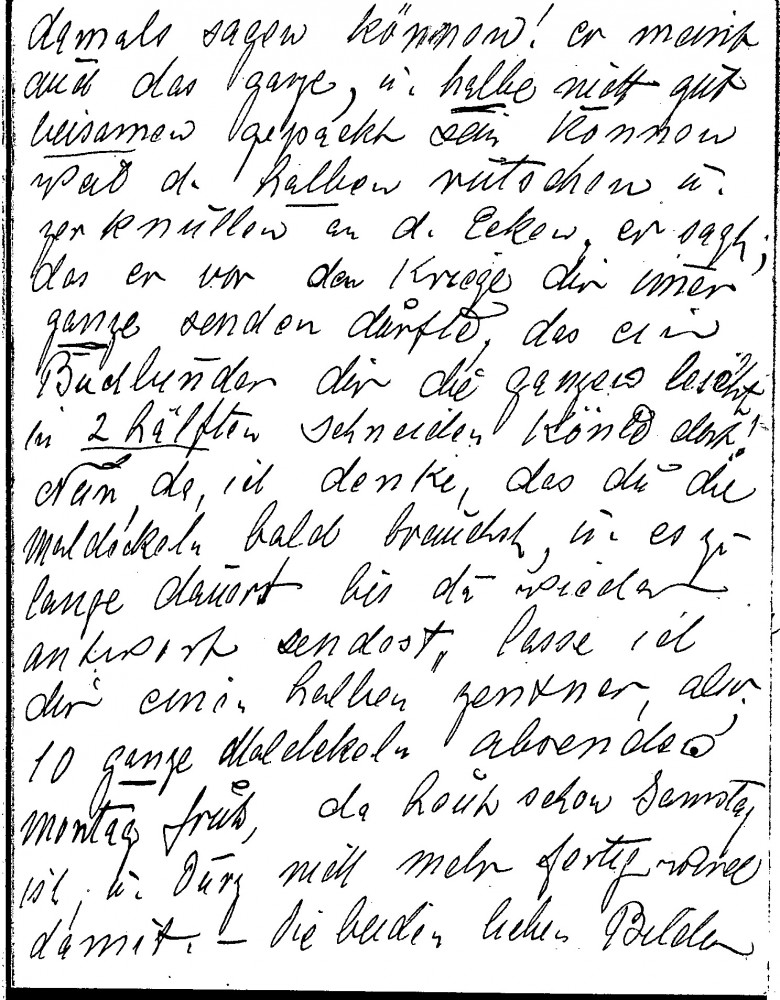 damals sagen können! er meint
auch das ganze, u. halbe nicht gut
beisamen gepackt sein können
weil d. halben rutschen u.
zerknüllen an d. Ecken, er sagt,
das er vor den Kriege dir imer
ganze senden dürfte, das ein
Buchbinder dir die ganzen leicht
in 2 hälften schneiden könne
Nun, da, ich denke, das du die
maldéckeln bald brauchst, u. es zu
lange dauert bis du wieder
antwort sendest, lasse ich
dir einen halben zentner, also,
10 ganze Maldekeln absenden
montag früh, da heute schon Samstag
ist, u. nicht mehr fertig wird
damit. – Die beiden lieben Bilder